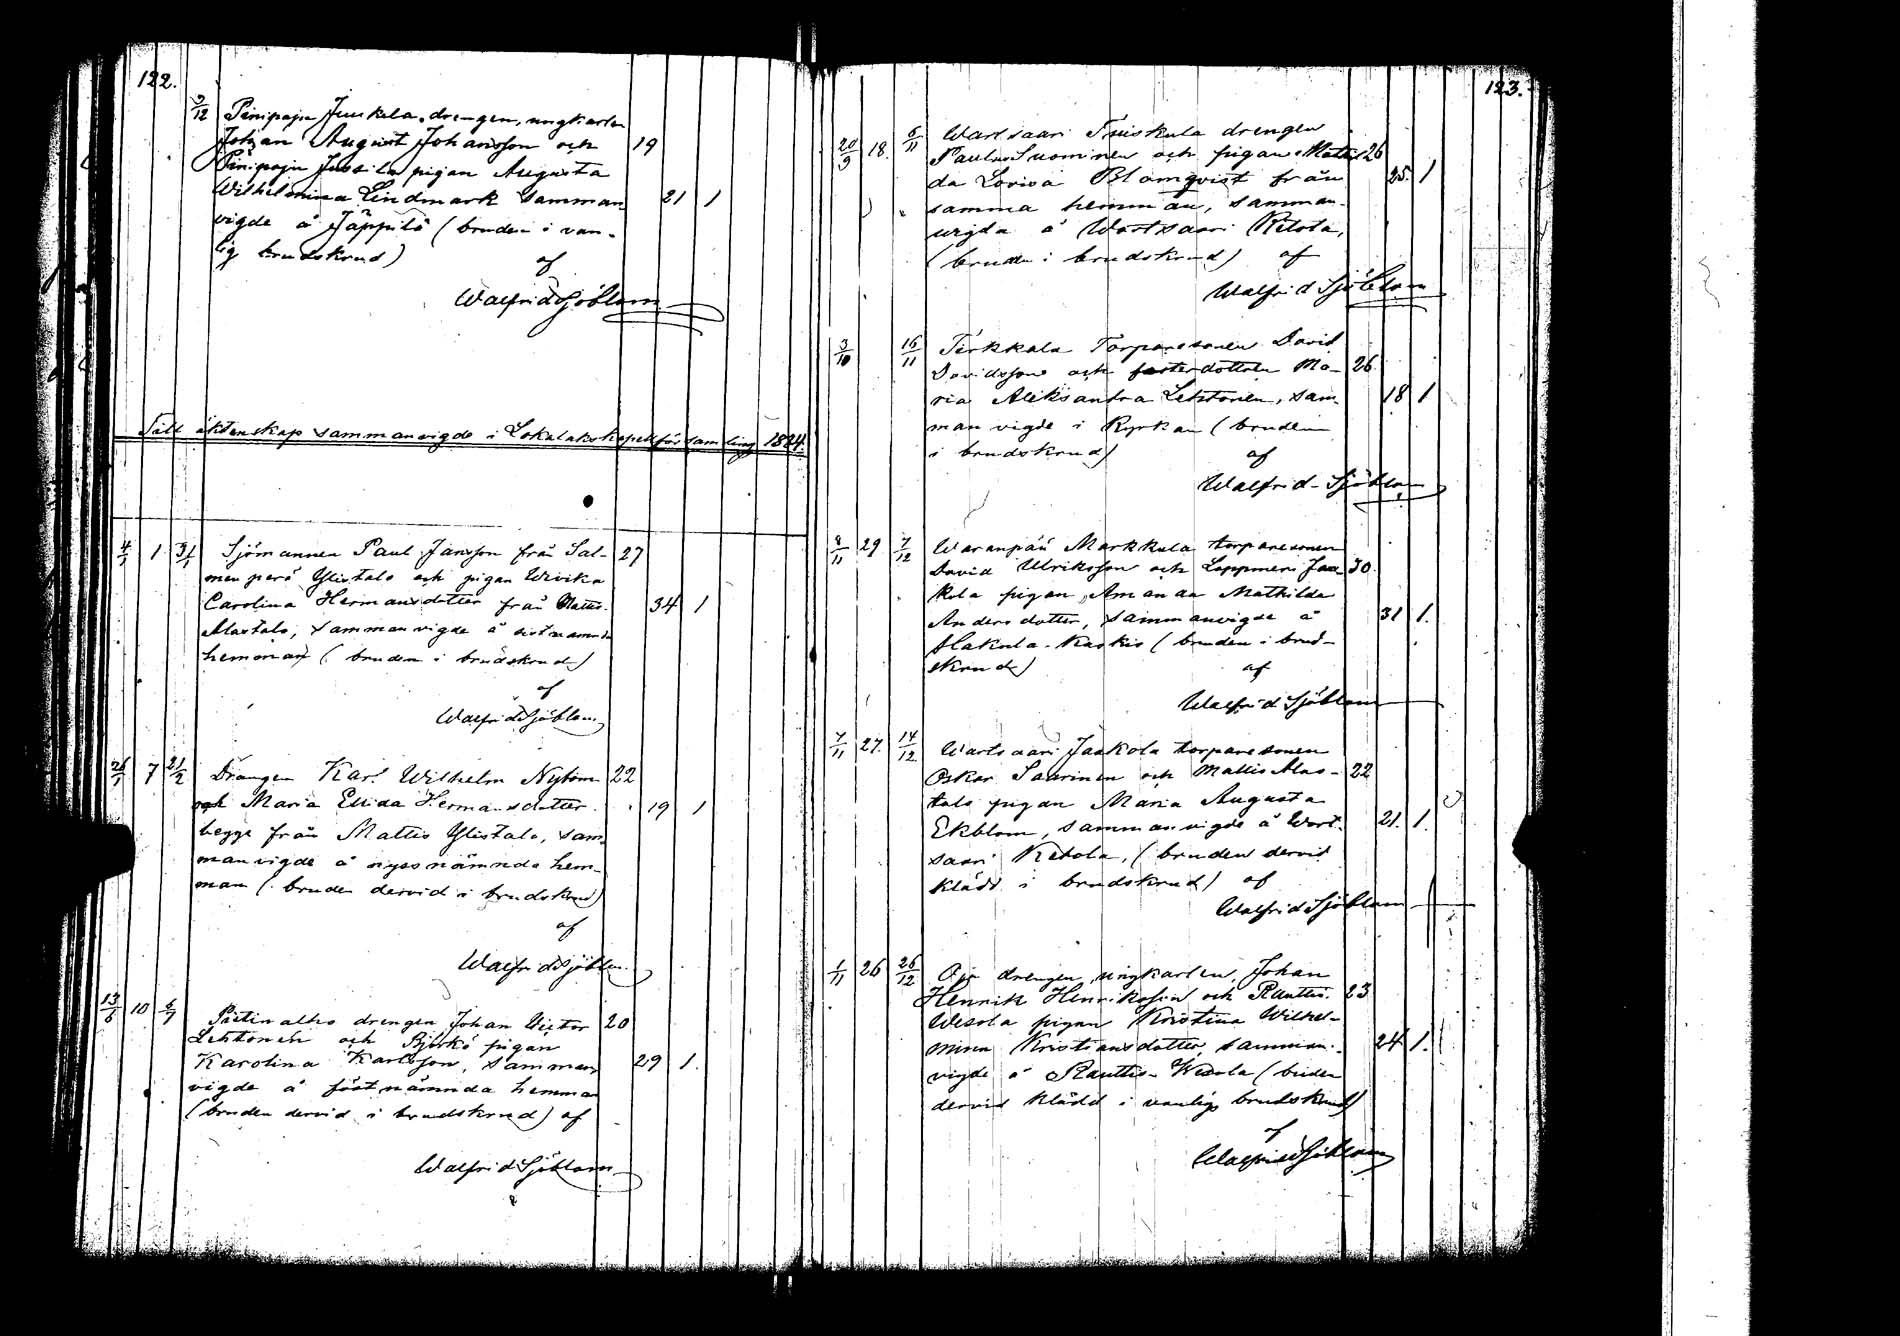 122.
9/12 Pinipaju Juukela drengen, ungkarlen
Johan August Johansson och 19
Pinipaju Jussila pigan Augusta
Wilhelmina Lindmark samman 21 1
vigde å Jäppilä (bruden i van-
lig brudskrud) af
Walfrid Sjöblom
Till äktenskap sammanvigde i Lokalaks kapellförsamling 1884.
4/1 1 3/1 Sjömannen Paul Jansson från Sal- 27
menperä Ylistalo och pigan Wivika
Carolina Hermansdotter från Mattis 34 1
Alastalo, sammanvigde å sistnämnda
hemman (bruden i brudskrud)
af
Walfrid Sjöblom
26/1 7 21/2 Drängen Karl Wilhelm Nyblom 22
och Maria Elida Hermansdotter 19 1
begge från Mattis Ylistalo, sam
manvigde å nyssnämnda hem-
man (bruden dervid i brudskrud)
af
Walfrid Sjöblom
13/6 10 6/7 Pietinalho drengen Johan Victor 20
Lehtonen och Björkö pigan
Karolina Karlsson, samman 29 1.
vigde å förstnämnda hemman
(bruden dervid i brudskrud) af
Walfrid Sjöblom
123.
20/9 18. 6/11 Wartsaari Tuiskula drengen
Paulus Suominen och pigan Mathil 26
da Lovisa Blomqvist från 25. 1
samma hemman, samman-
vigda å Wartsaari Ketola,
(bruden i brudskrud) af
Walfrid Sjöblom
3/10 16/11 Tirkkala Torparesonen David
Davidsson och dottren Ma- 26.
ria Aleksandra Lehtonen, sam 18 1
manvigde i Kyrkan (bruden
i brudskrud) af
Walfrid Sjöblom
8/11 29 7/12 Waranpää Markkula torparesonen
David Ulriksson och Lappmeri Jaa- 30.
kola pigan, Amanda Mathilda
Andersdotter, sammanvigde å 31 1.
Hakula-Kaskis (bruden i brud-
skrud) af
Walfrid Sjöblom
7/11 27. 14/12 Wartsaari Jaakola torparesonen
Oskar Saarinen och Mattis Alas- 22
talo pigan Maria Augusta
Ekblom, sammanvigde å Wart- 21. 1.
saari Ketola, (bruden dervid
klädd i brudskrud) af
Walfrid Sjöblom
1/11 26 26/12 drengen, ungkarlen, Johan
Henrik Henriksson och Rauttis- 23
Wesola pigan Kristina Wilhel-
mina Kristiansdotter, samman- 24 1.
vigde å Rauttis-Wesola (bruden
dervid klädd i vanlig brudskrud)
af
Walfrid Sjöblom